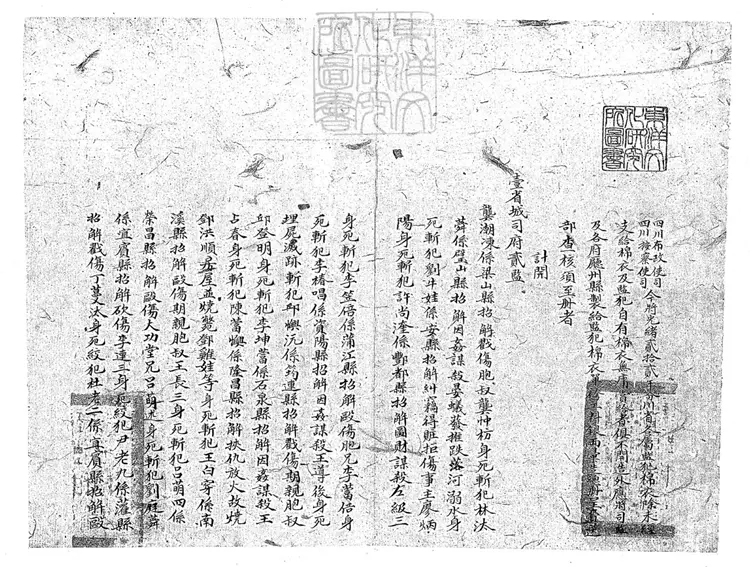 四川布政使司
四川按察使司
今將光緒貳拾貳年
川省
屬監犯棉衣除未經
支給棉衣及監犯自有棉衣無庸
給者俱不開造外應
司監
及各府廳州縣製給監犯棉衣
部查核須至册者
計開
壹省城司府貳監
龔潮涷係梁山縣招解戳傷胞叔龔忡枋身死斬犯林汰
蕣係璧山縣招解因姦謀殺晏蟻蕟推跌落河溺水身
死斬犯劉牛娃係安縣招解糾竊得賍拒傷事主廖炳
陽身死斬犯許尚淕係酆都縣招解圖財謀殺左級三
身死斬犯李
倍係蒲江縣招解毆傷胞兄李蕾倍身
死斬犯李椿唱係資陽縣招解因姦謀殺王導後身死
埋屍滅跡斬犯邱
沅係筠連縣招解戳傷期親胞叔
邱登明身死斬犯李坤蕾係石泉縣招解因姦謀殺王
占春身死斬犯陳蕾
係隆昌縣招解挾仇放火故燒
鄧洪順房屋並燒斃鄧雞娃等身死斬犯王白穿係南
溪縣招解毆傷期親胞叔王長三身死斬犯呂萌四係
榮昌縣招解毆傷大功堂兄呂萌述身死斬犯劉庭蕣
係宜賓縣招解砍傷李連三身死絞犯尹老九係灌縣
招解戳傷丁蔓汰身死絞犯杜老二係宜賓縣招解毆
東洋文化研究所圖書
東洋文化研究所圖書